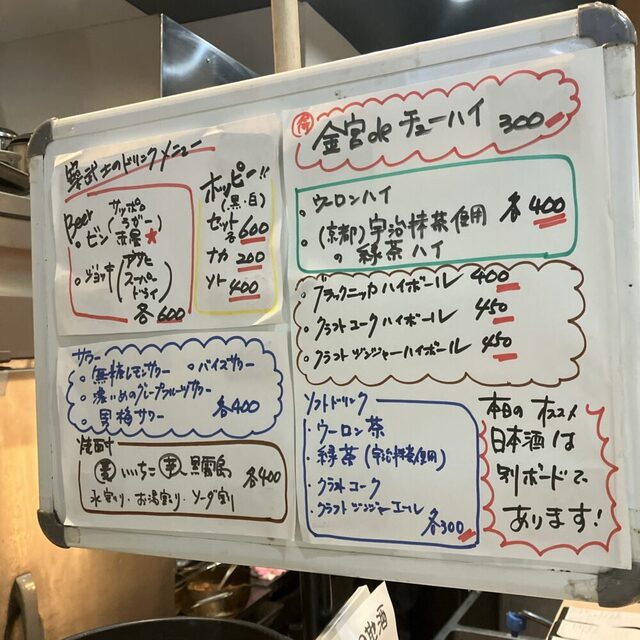 武士のドリンクメニュー
Beer
・ビン
サッポロ
赤星★
・ジョッキ
アサヒ
スーパー
ドライ
各600
ホッピー!!
(黒・白)
セット
各600
ナカ 200
ソト 400
サワー
・無糖レモンサワー ・バイスサワー
・濃いめのグレープフルーツサワー
・男梅サワー 各400
焼酎
麦 いいちこ 芋 黒霧島 各400
水割り・お湯割り・ソーダ割り
金宮deチューハイ 300
・ウーロンハイ
・(京都)宇治抹茶使用
の緑茶ハイ
各400
・ブラックニッカハイボール 400
・クラフトコークハイボール 450
・クラフトジンジャーハイボール 450
ソフトドリンク
・ウーロン茶
・緑茶(宇治抹茶使用)
・クラフトコーク
・クラフトジンジャーエール
各300
本日のオススメ
日本酒は
別ボードで
あります!